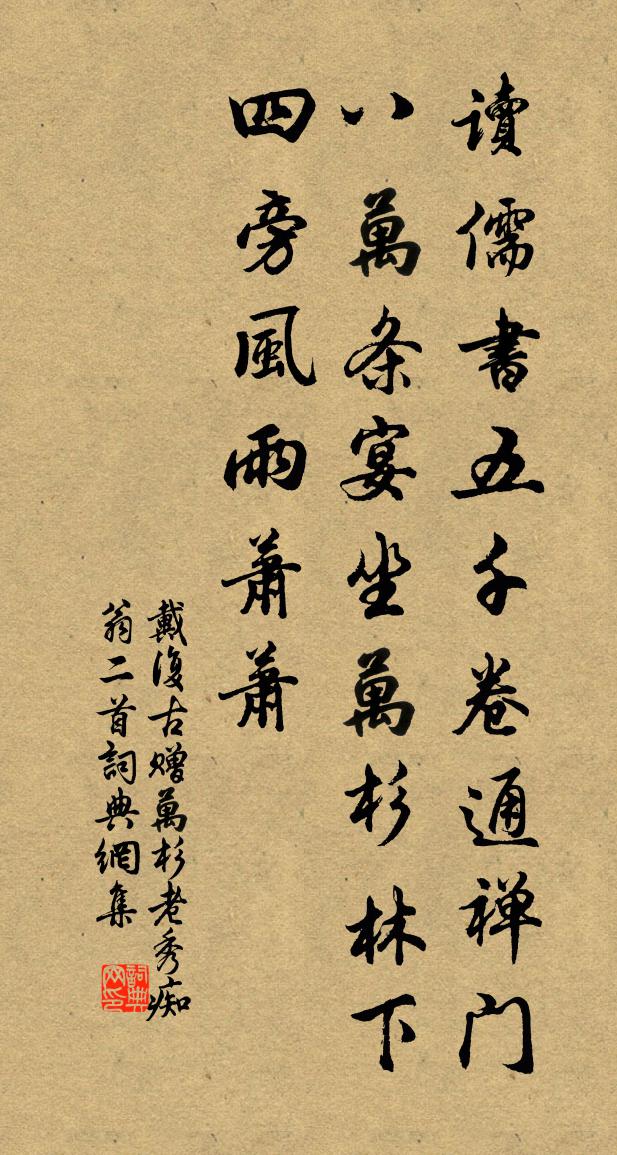 讀儒書五千卷通禅门
八萬条宴坐萬杉林下
四旁風雨蕭蕭
戴復古赠萬杉老秀痴
翁二首詞典網集
詞典网印